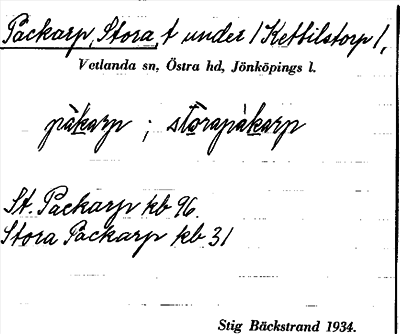 Packarp, Stora, t under /Kettilstorp/,
Vetlanda sn, Östra hd, Jönköpings l.
pàkarp ; stòrapàkarp
St. Packarp kb 96.
Stora Packarp kb 31
Stig Bäckstrand 1934.